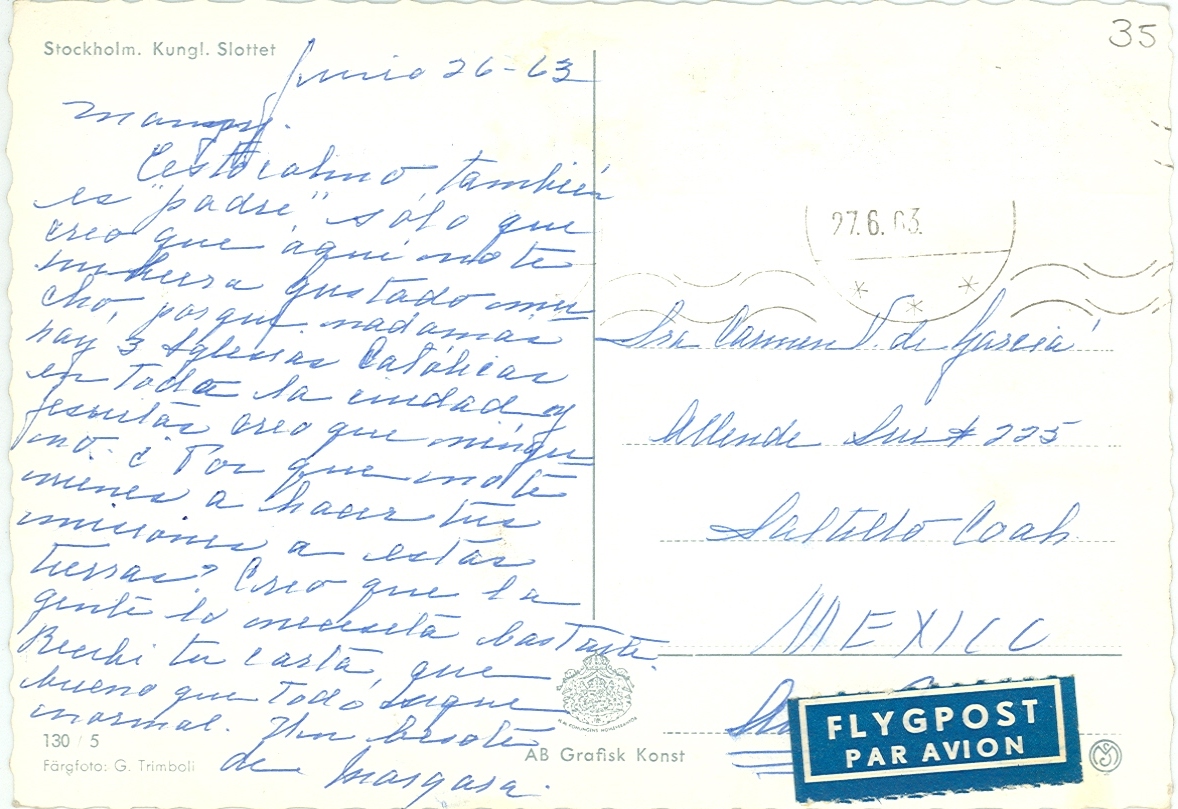 Stockholm. Kungl. Slottet
Junio 26-63
Mamy.
Estocolmo, también
es "padre" sólo que
creo que aqui no te
hubiera gustado mu
cho, porque nadamás
hay 3 Iglesias Católicas
en toda la ciudad y
jesuitas creo que ningu
no. ¿Por que no te
vienes a hacer tus
misiones a estas
tierras? Creo que la
gente lo necesita bastante.
Recibi tu carta, que
bueno que todo sigue
normal. Un besote
de Margara.
130 / 5
Färgfoto: G. Trimboli
AB Grafisk Konst
35
27.6.63.
Sra Carmen V. de Garcia
Allende Sur # 225
Saltillo Coah.
MEXICO
FLYGPOST
PAR AVION